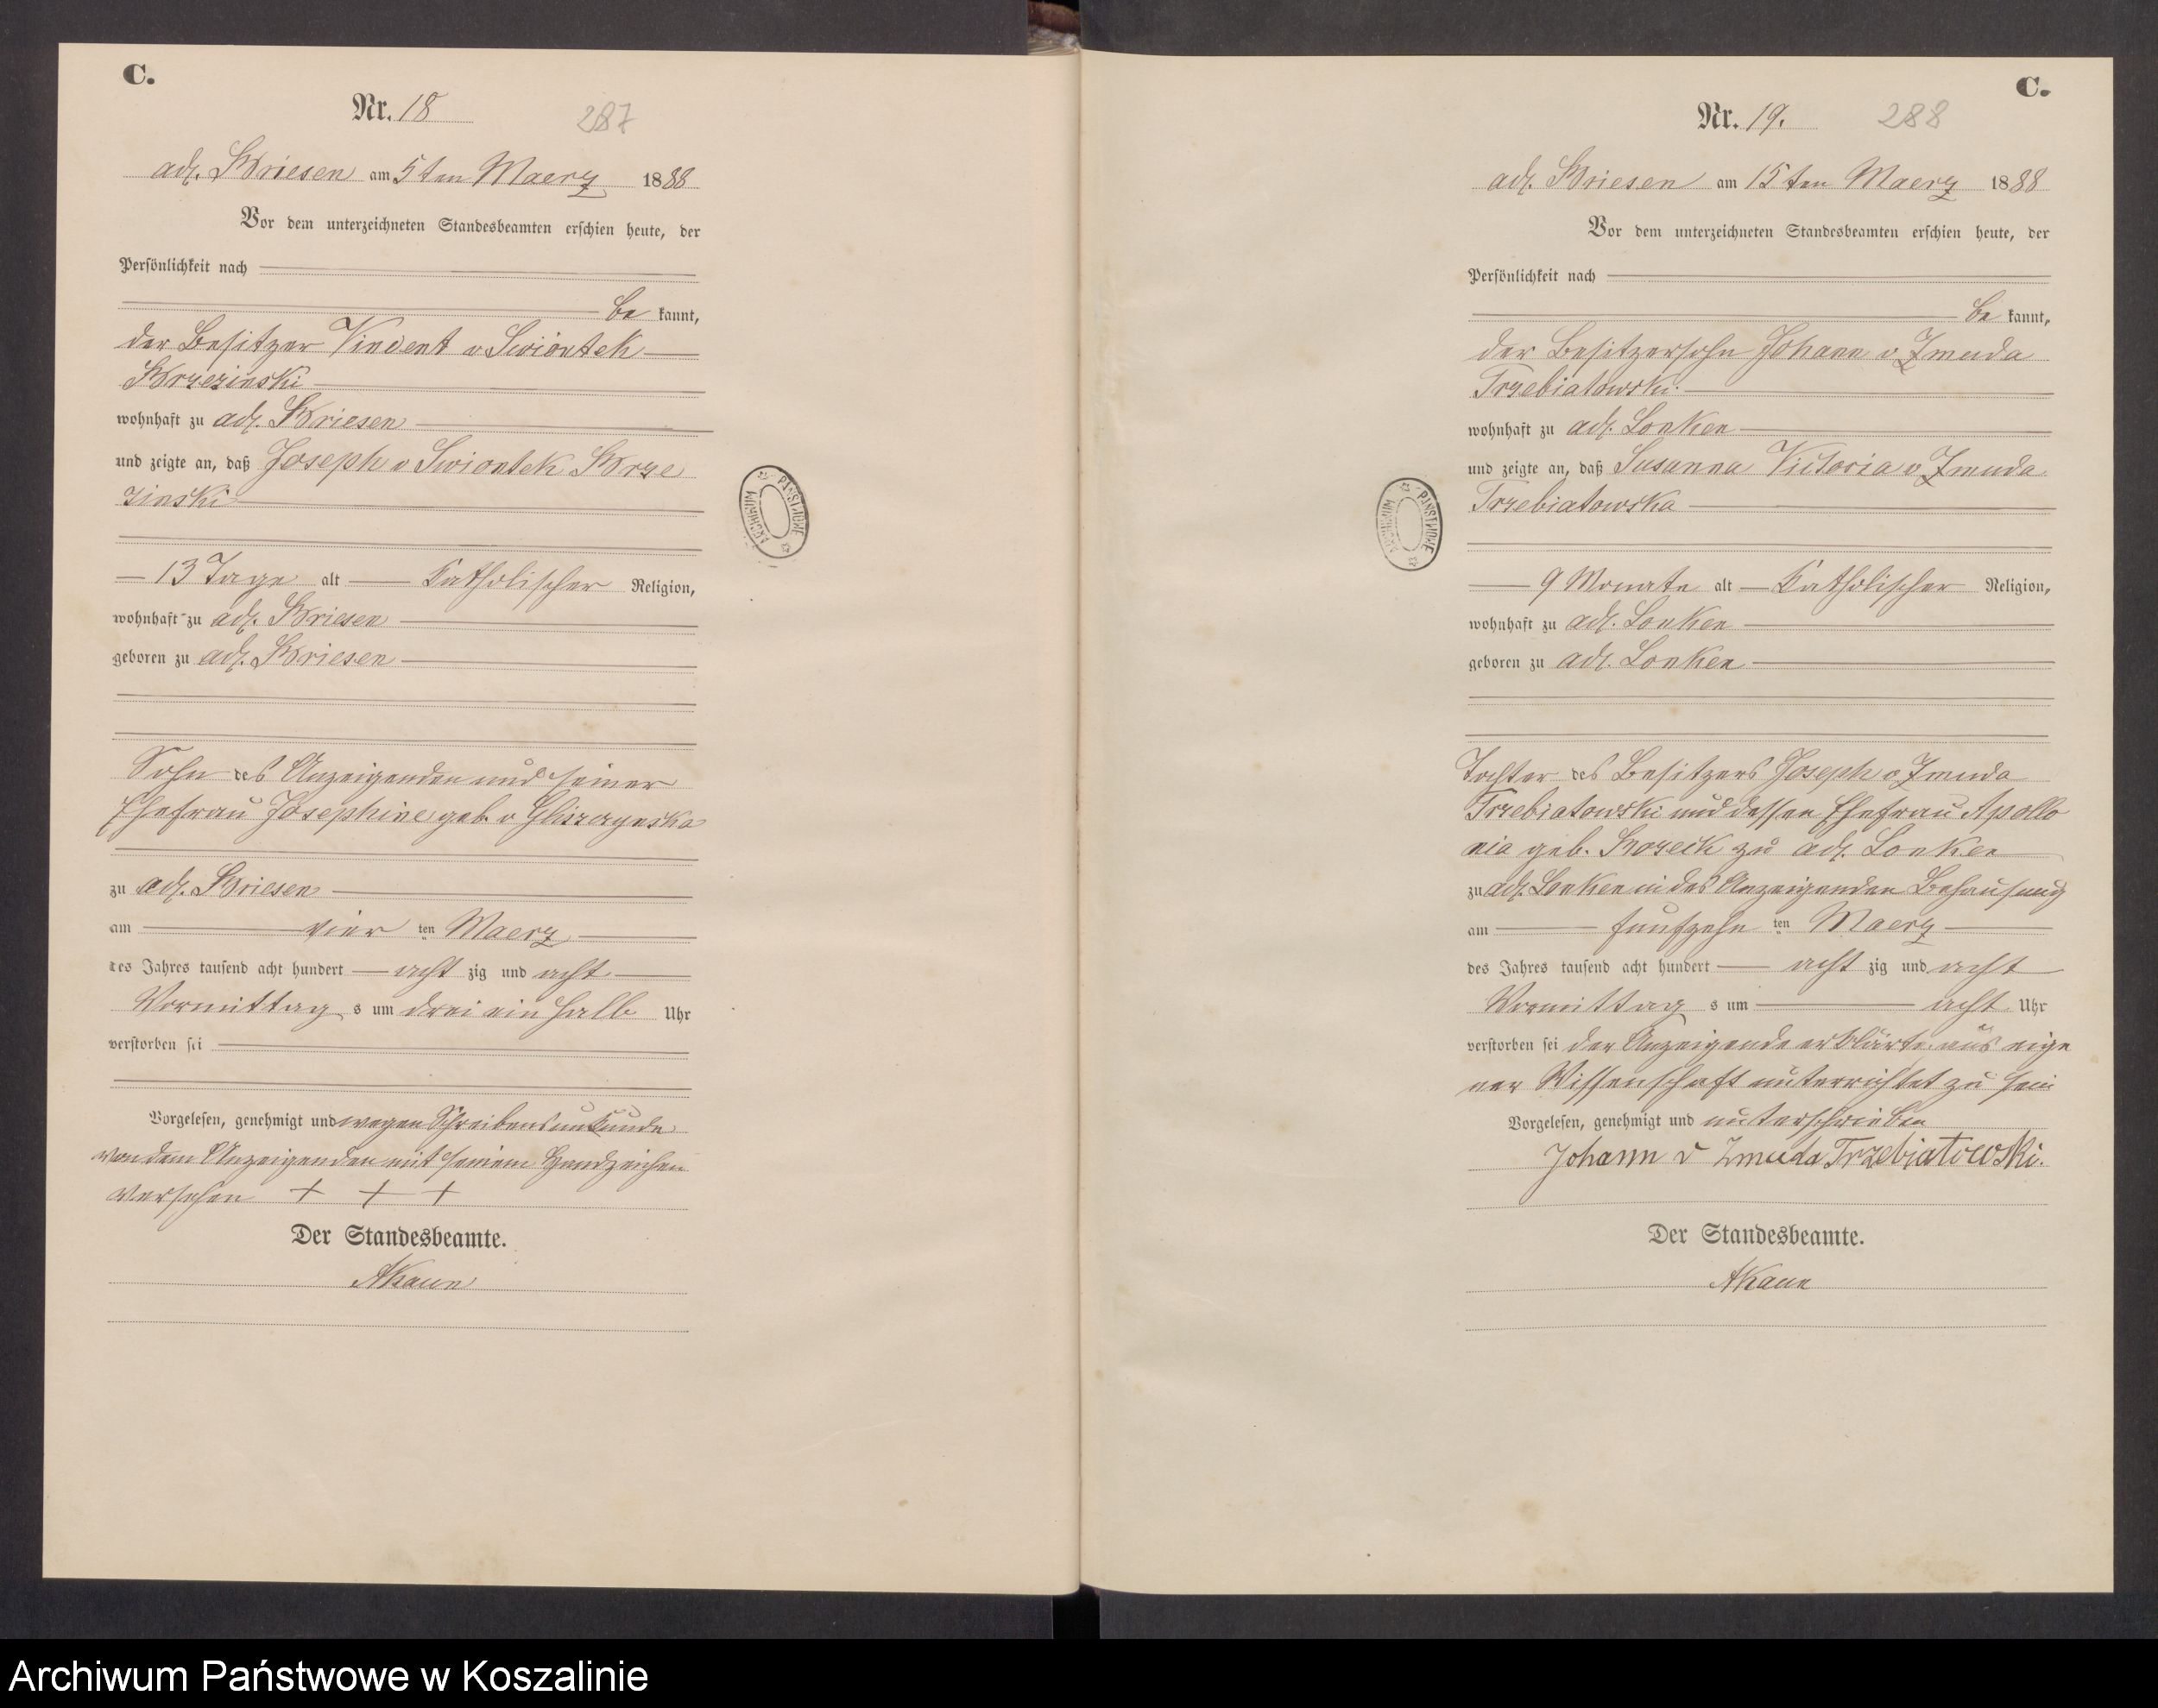 C.
Nr. 18
287
adl. Briesen am 5ten Maerz 1888
Vor dem unterzeichneten Standesbeamten erschien heute, der
Persönlichkeit nach
be kannt,
der Besitzer Vincent v Swiontek
Brzezinski
wohnhaft zu adl. Briesen
und zeigte an, daß Joseph v Swiontek Brze
zinski
13 Tage alt katholischer Religion,
wohnhaft zu adl. Briesen
geboren zu adl. Briesen
Sohn des Anzeigenden und seiner
Ehefrau Josephine geb. v
zu adl. Briesen
am vier ten Maerz
des Jahres tausend acht hundert acht zig und acht
Vormittag s um drei ein halb Uhr
verstorben sei
Vorgelesen, genehmigt und wegen Schreibensunkunde
von dem Anzeigenden mit seinem Handzeichen
versehen + + +
Der Standesbeamte.
AKaun
ARCHIWUM PAŃSTWOWE
C.
Nr. 19.
288
adl. Briesen am 15ten Maerz 1888
Vor dem unterzeichneten Standesbeamten erschien heute, der
Persönlichkeit nach
be kannt,
der Besitzersohn Johann v Zmuda
Trzebiatowski
wohnhaft zu adl. Lonken
und zeigte an, daß Susanna Victoria v Zmuda
Trzebiatowska
9 Monate alt katholischer Religion,
wohnhaft zu adl. Lonken
geboren zu adl. Lonken
Tochter des Besitzers Joseph v Zmuda
Trzebiatowski und dessen Ehefrau Apollo
nia geb. zu adl. Lonken
zu adl. Lonken in des Anzeigenden Behausung
am funfzehn ten Maerz
des Jahres tausend acht hundert acht zig und acht
Vormittag s um acht Uhr
verstorben sei der Anzeigende erklärte aus eige
ner Wissenschaft unterrichtet zu sein
Vorgelesen, genehmigt und unterschrieben
Johann v Zmuda Trzebiatowski.
Der Standesbeamte.
AKaun
ARCHIWUM PAŃSTWOWE
Archiwum Państwowe w Koszalinie